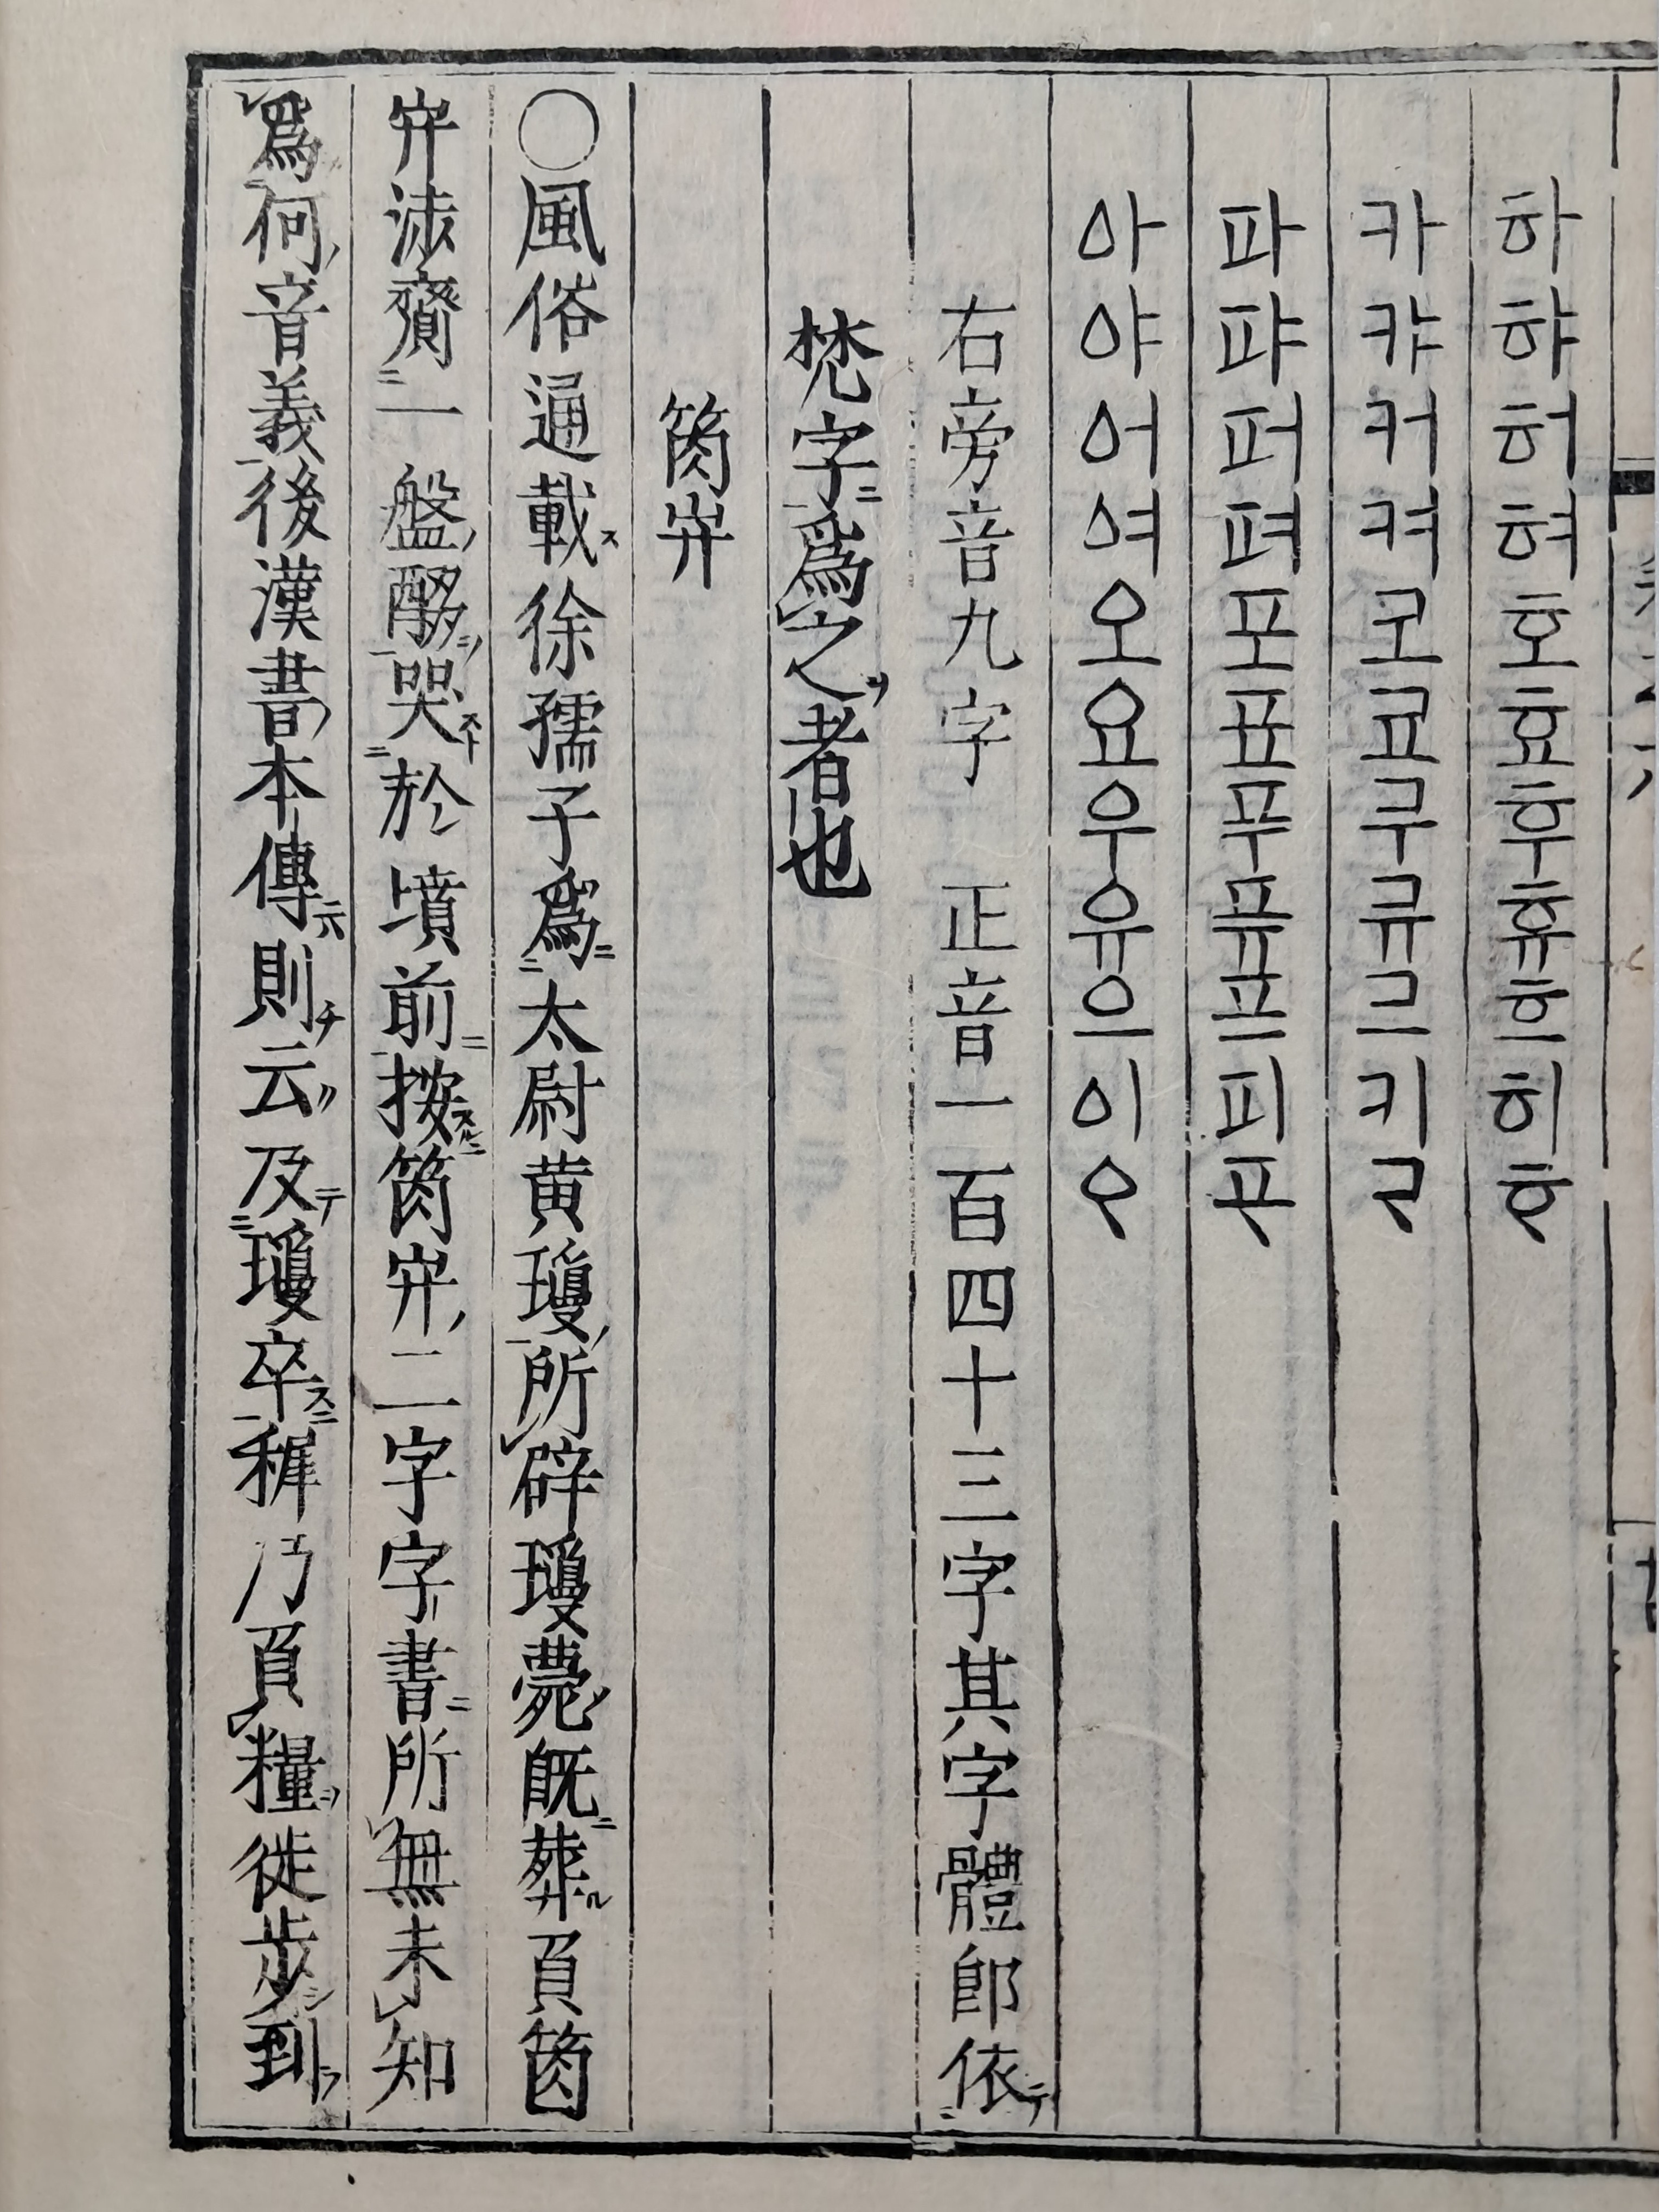 하햐허혀호효후휴흐히ᄒᆞ
카캬커켜코쿄쿠큐크키ᄏᆞ
파퍄퍼펴포표푸퓨프피ᄑᆞ
아야어여오요우유으이ᄋᆞ
右旁音九字　正音一百四十三字其字體即依
梵字爲之者也
〇風俗通載徐孺子爲太尉黄瓊所辟瓊薨既葬負
涉齎一盤醊哭於墳前按二字字書所無未知
爲何音義後漢書本傳則云及瓊卒穉乃負糧徙步到